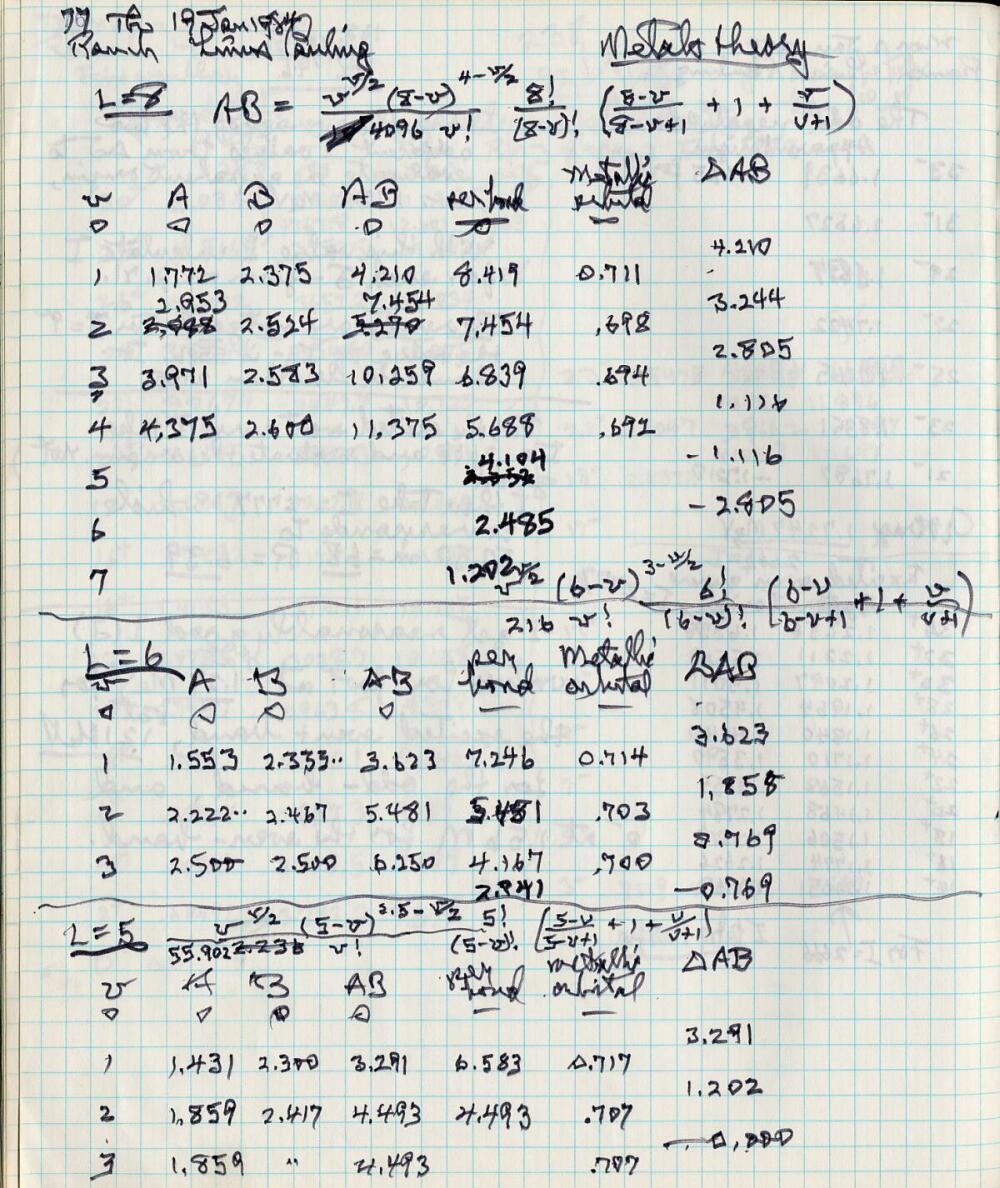 Th 19 Jan 1984
Ranch Linus Pauling Metals theory
L=8 AB = v^v/2 (8-v)^4-v/2 / 4096 v! 8! / (8-v)! ( 8-v / 8-v+1 + 1 + v / v+1 )
v A B AB per bond Metallic orbital ΔAB
0 0 0 0 0
4.210
1 1.772 2.375 4.210 8.419 0.711
2.953 7.454 3.244
2 2.524 5.270 7.454 .698
2.805
3 3.971 2.583 10,259 6.839 .694
1.116
4 4,375 2.600 11,375 5.688 .692
4.104 -1.116
5
-2.805
6 2.485
7 1.202
v^v/2 (6-v)^3-v/2 / 216 v! 6! / (6-v)! ( 6-v / 6-v+1 + 1 + v / v+1 )
L=6
v A B AB per bond Metallic orbital ΔAB
0 0 0 0
3.623
1 1.553 2.333·· 3.623 7.246 0.714
1,858
2 2.222·· 2.467 5.481 5.481 .703
0.769
3 2.500 2.500 6.250 4.167 .700
2.841 -0.769
L=5 v^v/2 (5-v)^2.5-v/2 / 55.902 2.236 v! 5! / (5-v)! ( 5-v / 5-v+1 + 1 + v / v+1 )
v A B AB per bond metallic orbital ΔAB
0 0 0 0
3.291
1 1.431 2.300 3.291 6.583 0.717
1.202
2 1,859 2.417 4.493 4.493 .707
-0,000
3 1.859 " 4.493 .707